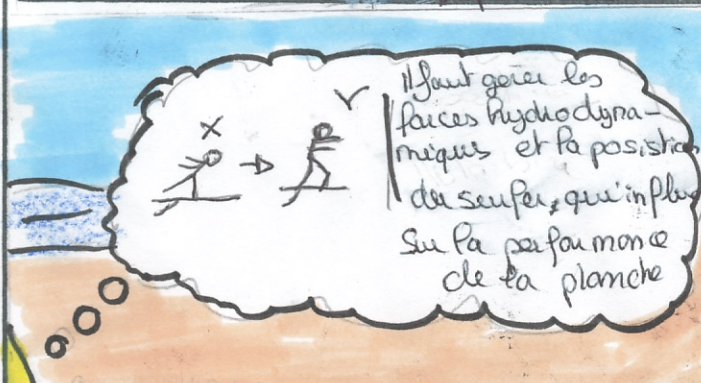 Il faut gérer les
forces hydrodyna-
miques et la posistion
du surfer, qui influe
sur la performance
de la planche